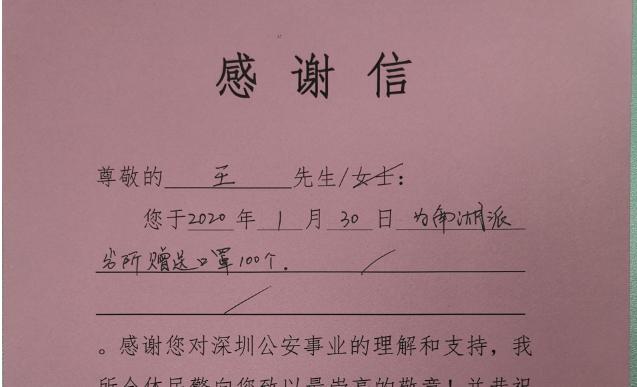 感谢信
尊敬的 王 先生/女士:
您于2020年1月30日为南湖派
出所赠送口罩100个.
。感谢您对深圳公安事业的理解和支持,我
所全体民警向您致以最崇高的敬意!并恭祝